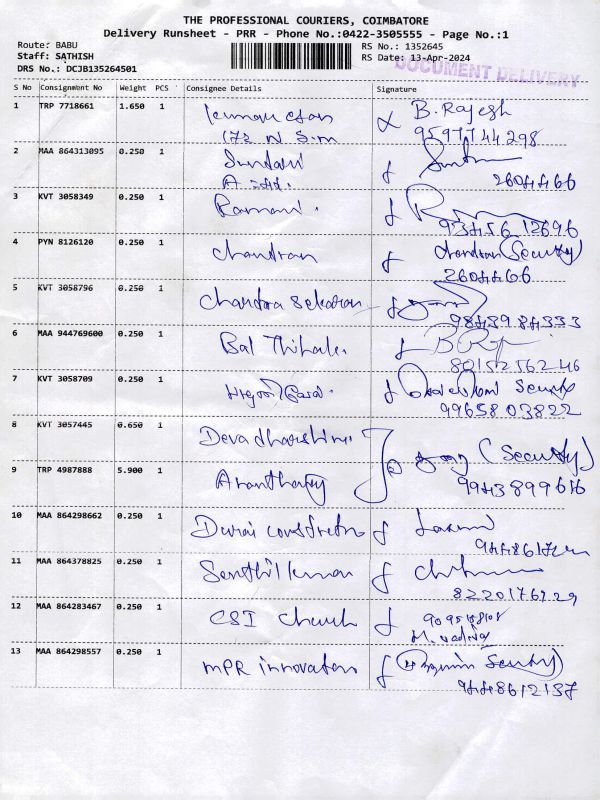 THE PROFESSIONAL COURIERS, COIMBATORE
Delivery Runsheet - PRR - Phone No.:0422-3505555 - Page No.:1
Route: BABU RS No.: 1352645
Staff: SATHISH RS Date: 13-Apr-2024
DRS No.: DCJB135264501 DOCUMENT DELIVERY
S No Consignment No Weight PCS Consignee Details Signature
1 TRP 7718661 1.650 1 B. Rajesh
172 N S.M 9597744298
2 MAA 864313095 0.250 1
2604466
3 KVT 3058349 0.250 1 Ramani.
93456 12696
4 PYN 8126120 0.250 1 Chandran Chandran (Security)
2604466
5 KVT 3058796 0.250 1 Chandra Sekaran
98439 84333
6 MAA 944769600 0.250 1 Bal
8015256246
7 KVT 3058709 0.250 1 Security
9965803822
8 KVT 3057445 0.650 1 Devadharshini (Security)
9 TRP 4987888 5.900 1
10 MAA 864298662 0.250 1 Durai
11 MAA 864378825 0.250 1 Senthilkumar
12 MAA 864283467 0.250 1 CSI Church
13 MAA 864298557 0.250 1 MPR innovations Security)
9448612137